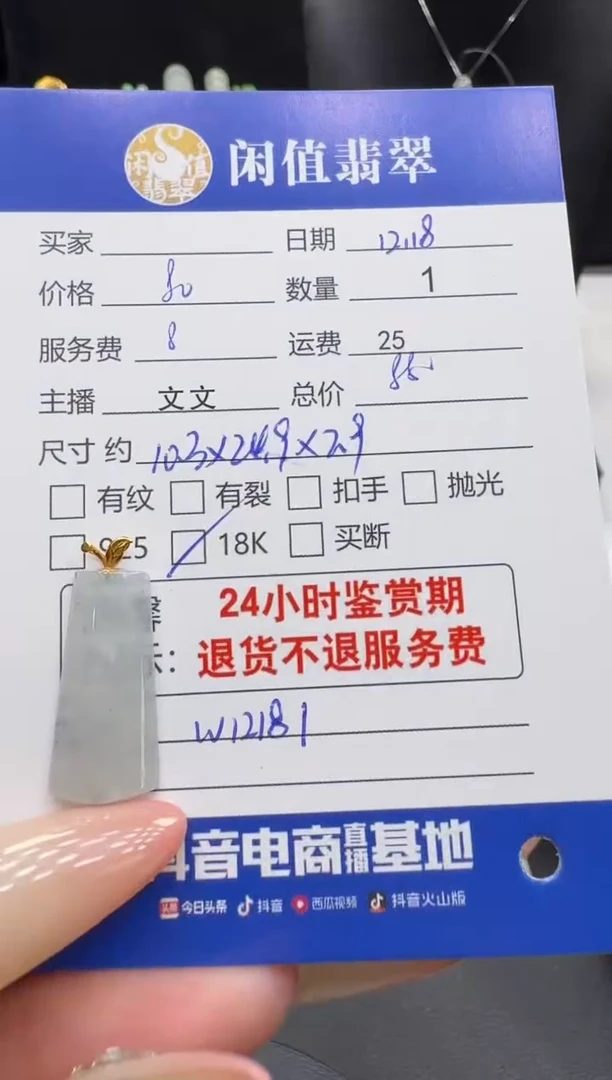 闲值翡翠
买家 日期 12.18
价格 80 数量 1
服务费 8 运费 25
主播 文文 总价
尺寸 约 10.3×24.9×2.9
有纹 有裂 扣手 抛光
925 18K 买断
24小时鉴赏期
退货不退服务费
W12181
抖音电商直播基地
今日头条 抖音 西瓜视频 抖音火山版